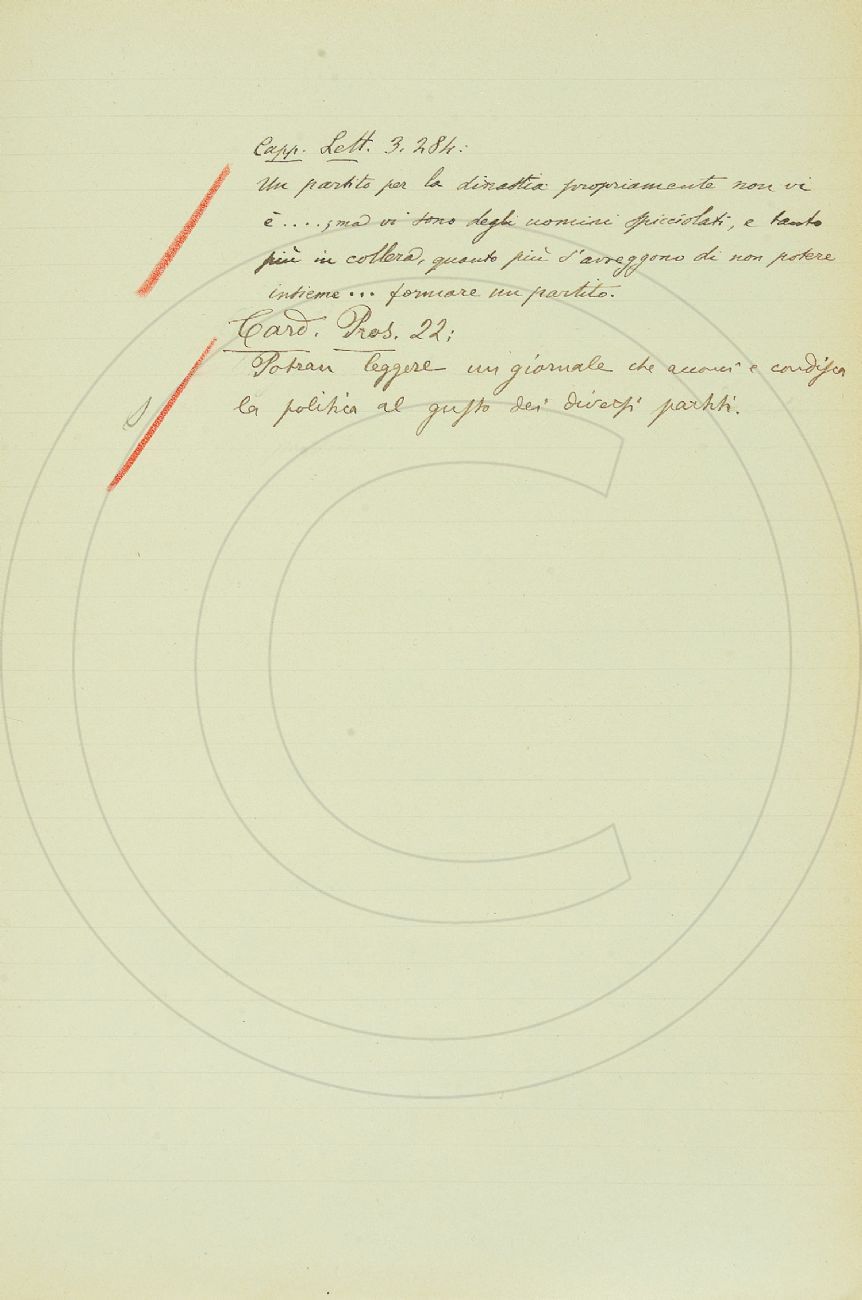 Capp. Lett. 3. 284:
Un partito per la dinastia propriamente non vi
è....; ma vi sono degli uomini spicciolati, e tanto
più in collera, quanto più s'avveggono di non potere
insieme... formare un partito.
Card. Pros. 22:
Potran leggere un giornale che acconci e condisca
la politica al gusto dei diversi partiti.